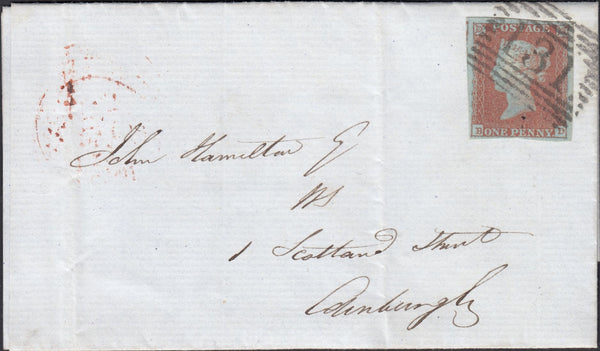 POSTAGE
131
ONE PENNY
John Hamilton Eq
WS
1 Scotland Street
Edinburgh